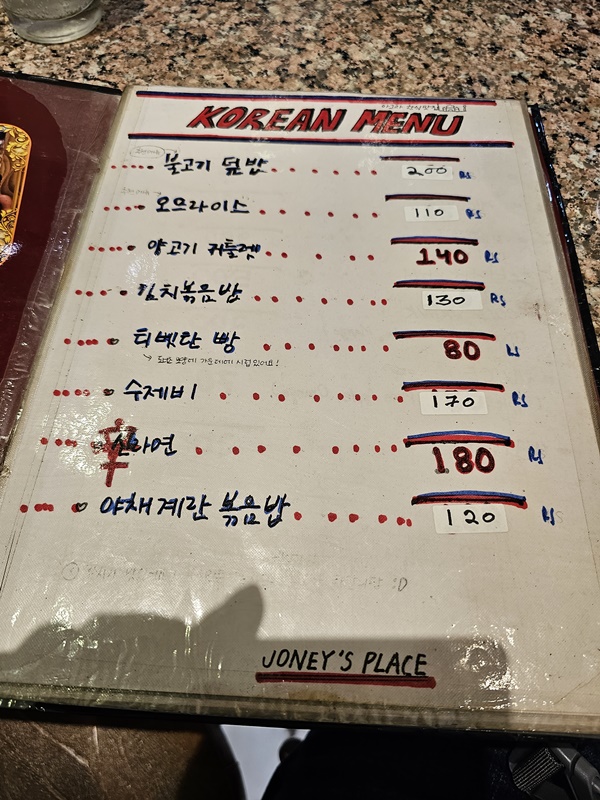 KOREAN MENU
불고기 덮밥 200 Rs
오므라이스 110 Rs
양고기 커틀렛 140 Rs
김치볶음밥 130 Rs
티벳탄 빵 80 Rs
수제비 170 Rs
辛 신라면 180 Rs
야채계란 볶음밥 120 Rs
JONEY'S PLACE